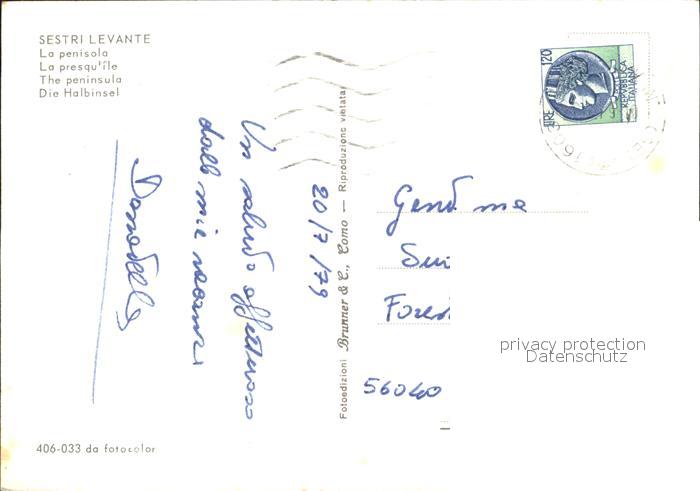 SESTRI LEVANTE
La penisola
La presqu'île
The peninsula
Die Halbinsel
20/7/79
Un saluto affettuoso
dalle mie vacanze
Donatella
Fotoedizioni Brunner & C., Como — Riproduzione vietata
LIRE 120
REPVBBLICA
ITALIANA
Gent ma
Foresi
56040
privacy protection
Datenschutz
406-033 da fotocolor